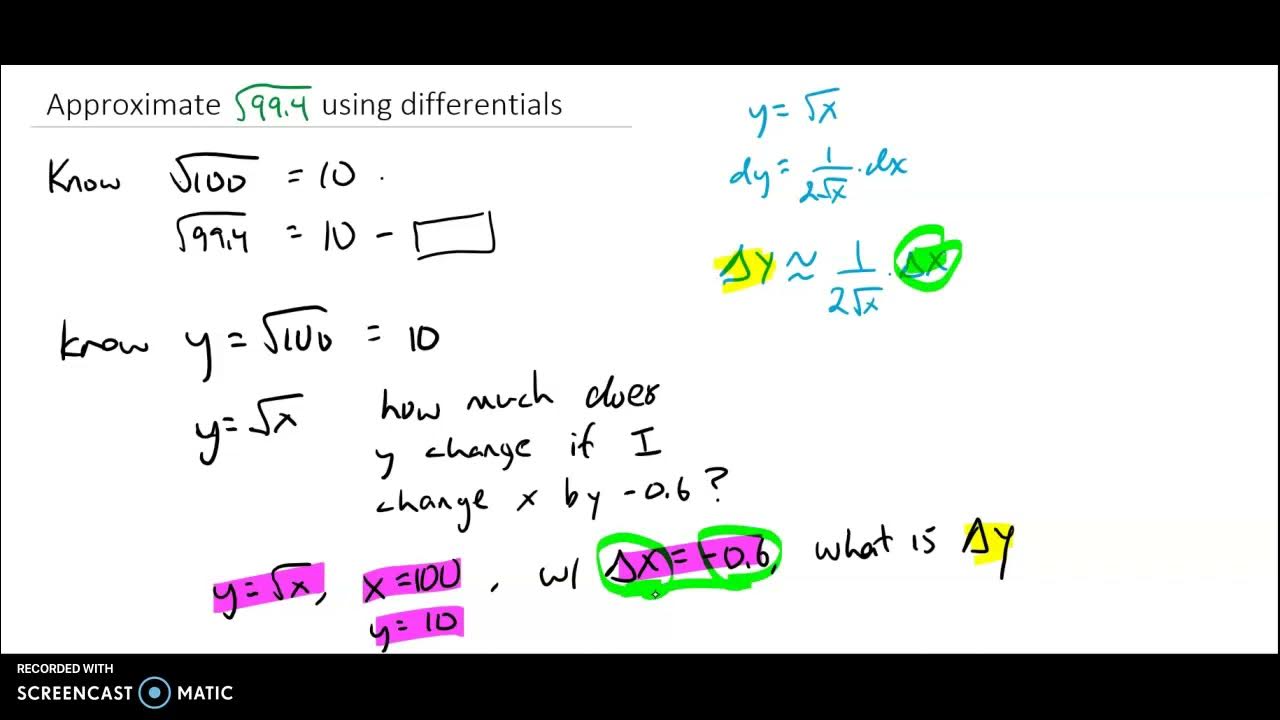 Approximate √99.4 using differentials
Know √100 = 10 .
√99.4 = 10 - □
know y = √100 = 10
y = √x
how much does
y change if I
change x by -0.6 ?
y = √x, x = 100 , w/ Δx = -0.6, what is Δy
y = 10
y = √x
dy = 1/2√x · dx
Δy ≈ 1/2√x · Δx
RECORDED WITH
SCREENCAST MATIC